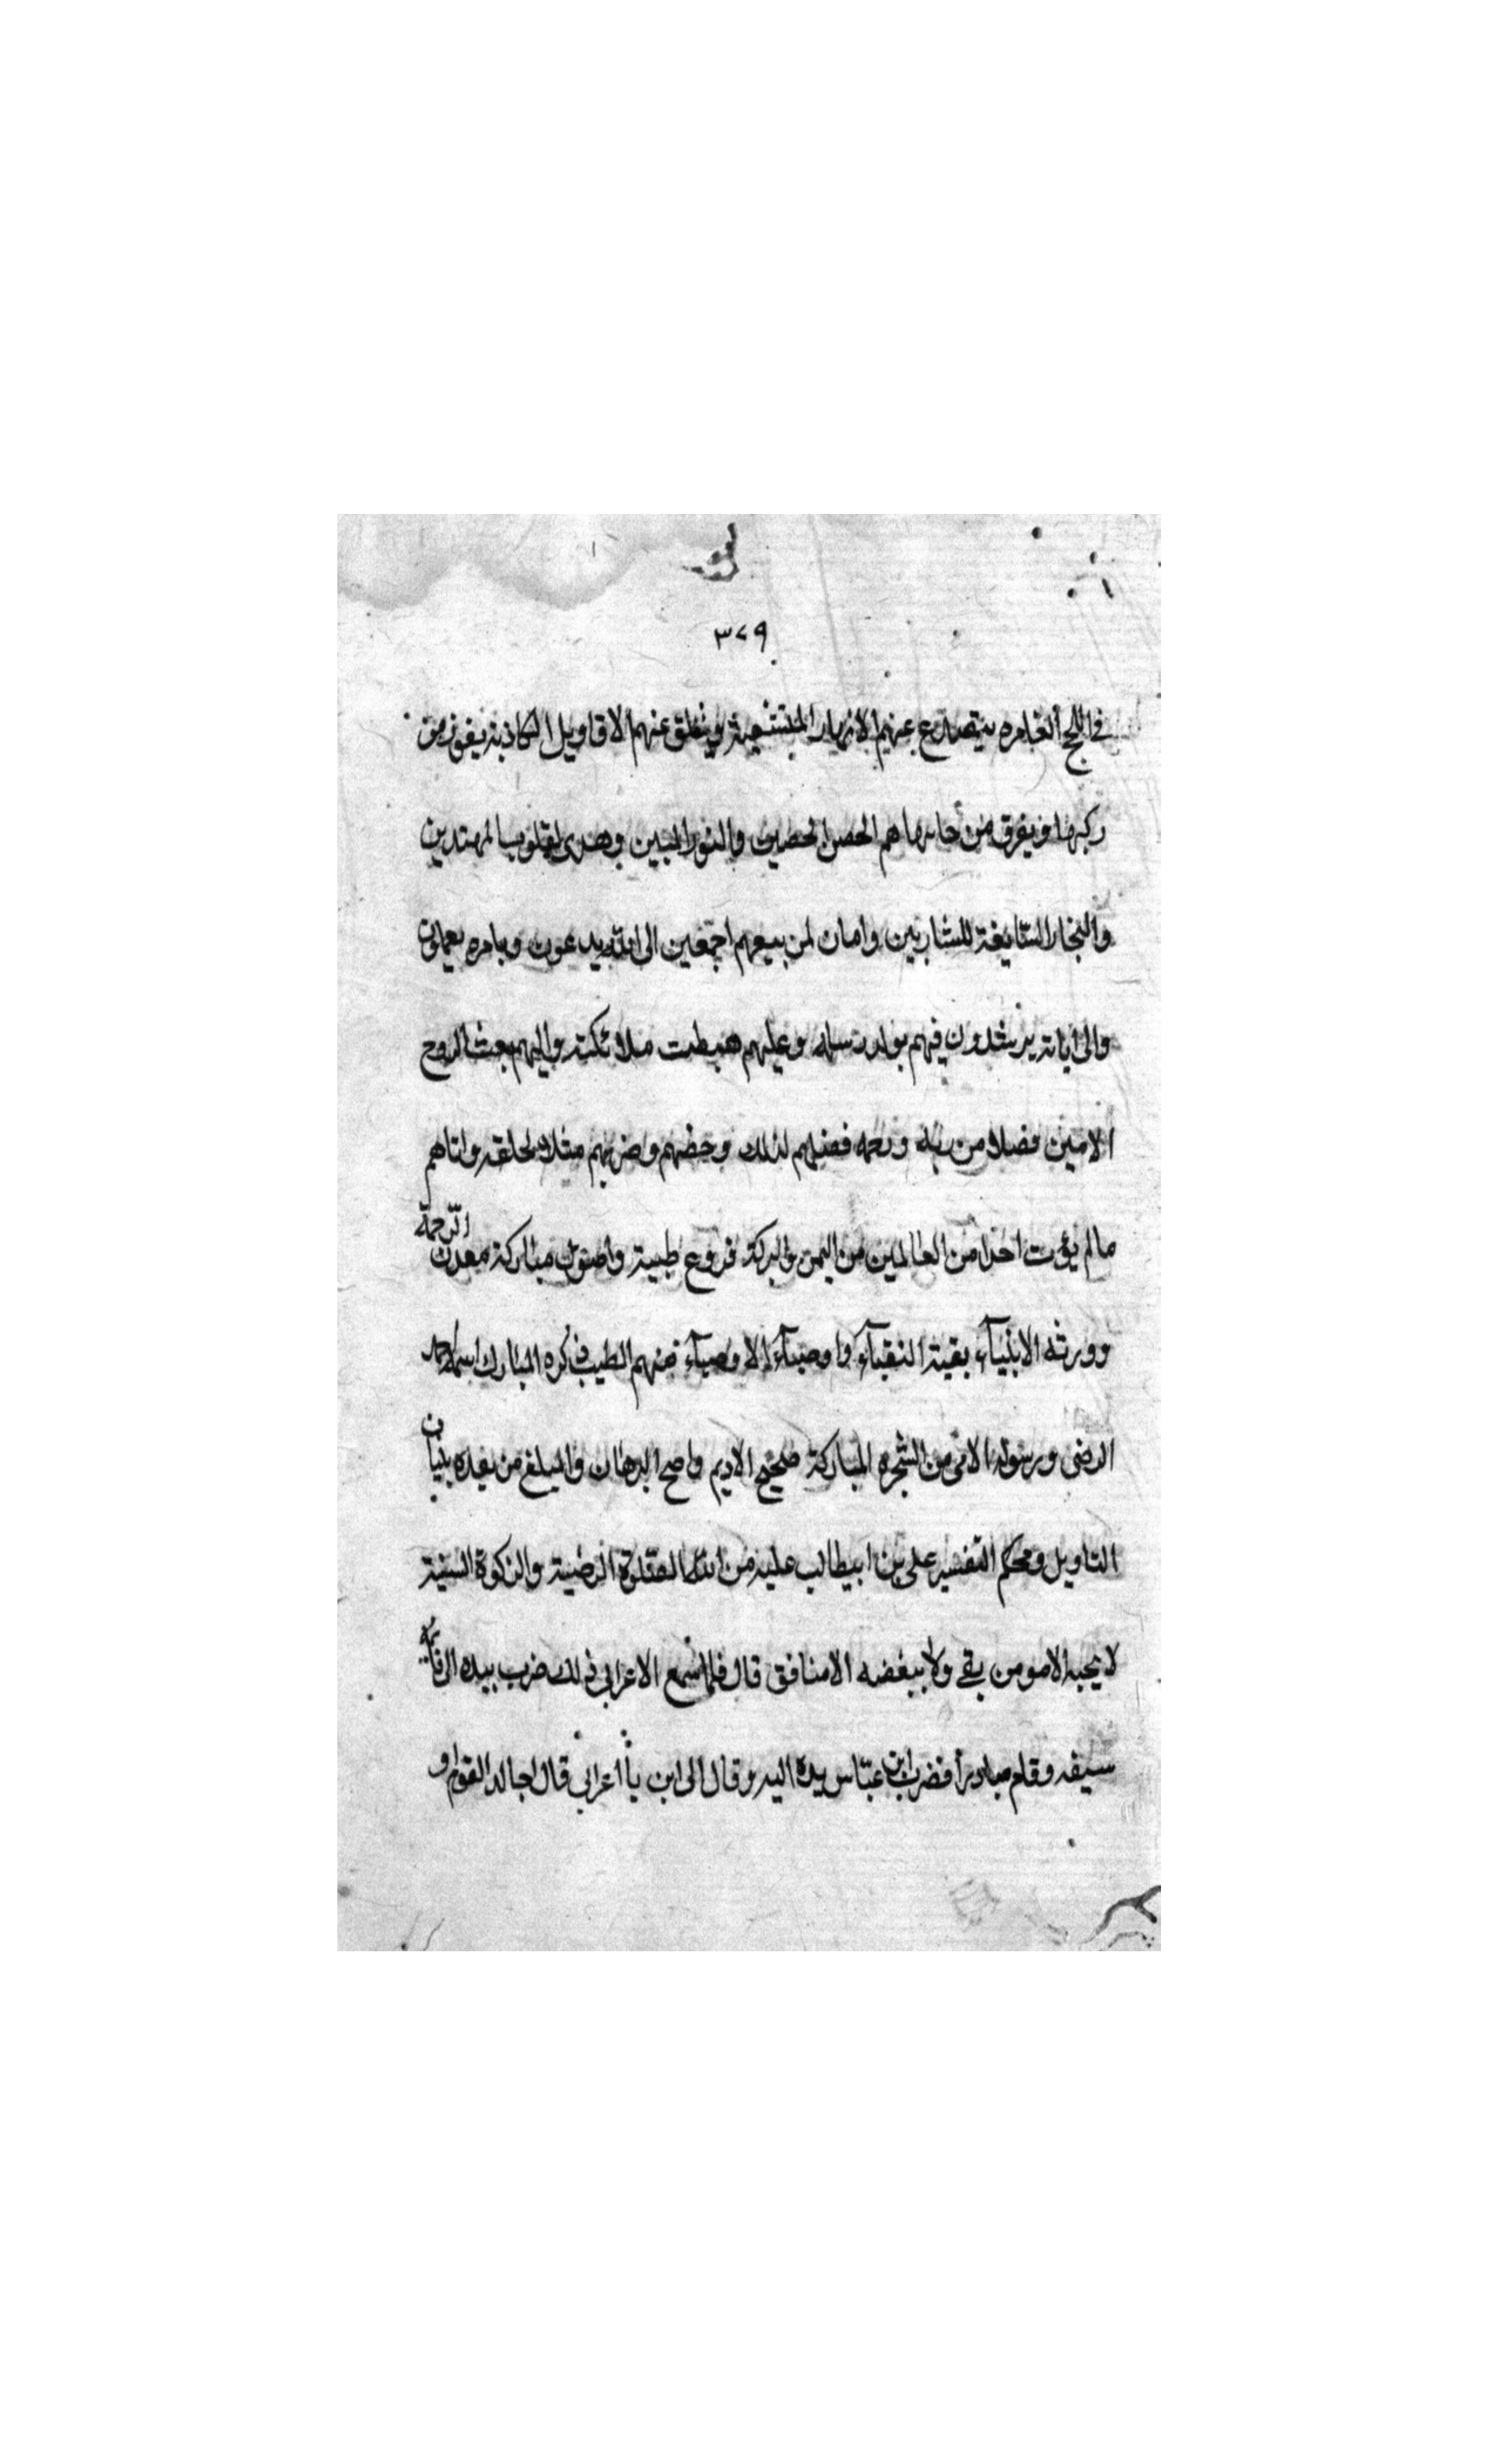 ٣٧٩
في اللجج الغامره يتصدع عنهم الانهار المتشعبة وينفلق عنهم الاقاويل الكاذبة يفوز من
ركبها ويغرق من جانبها هم الحصن الحصين والنور المبين وهدى لقلوب المهتدين
والبحار السايغة للشاربين وامان لمن تبعهم اجمعين الى الله يدعون وبامره يعملون
والى اياته يرشدون فيهم توارت رسله وعليهم هبطت ملائكته واليهم بعث الروح
الامين فضلا من ربه ورحمه فضلهم لذلك وخصهم وضربهم مثلا لخلقه واتاهم
مالم يؤت احدا من العالمين من اليمن والبركة فروع طيبة واصول مباركة معدن الرحمة
وورثه الانبياء بقية النقباء واوصياء الاوصياء منهم الطيب ذكره المبارك اسمه احمد
الرضى ورسوله الامي من الشجره المباركة صحيح الاديم واضح البرهان والمبلغ من بعده ببيان
التاويل ومحكم التفسير علي بن ابيطالب عليه من الله الصلوة الرضية والزكوة السنية
لا يحبه الا مومن تقي ولا يبغضه الا منافق قال فلما سمع الاعرابي ذلك ضرب بيده الى قائمة
سيفه وقام مبادرا فضرب ابن عباس يده اليه وقال الى اين يا اعرابي قال اجالد القوم او